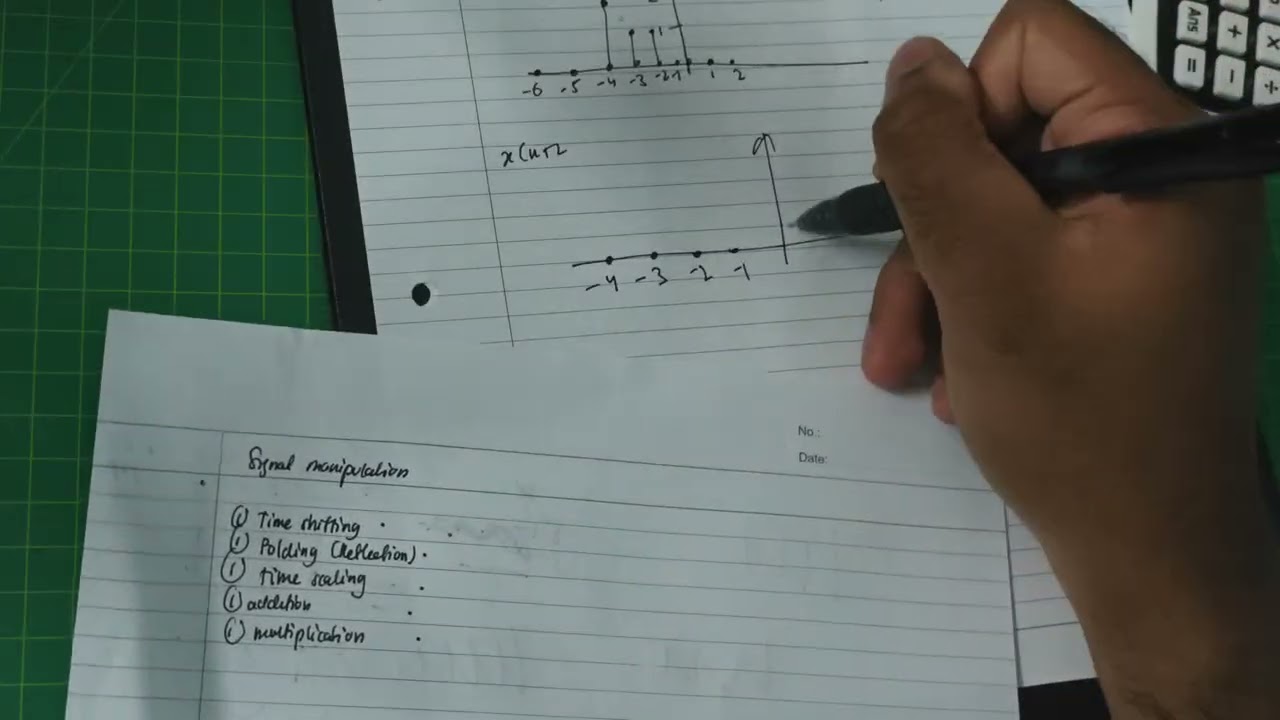 Ans + ×
= − ÷
1
-6 -5 -4 -3 -2 -1 1 2
x(n+2
-4 -3 -2 -1
No.:
Date:
Signal manipulation
① Time shifting
① Folding (Reflection)
① time scaling
① addition
① multiplication